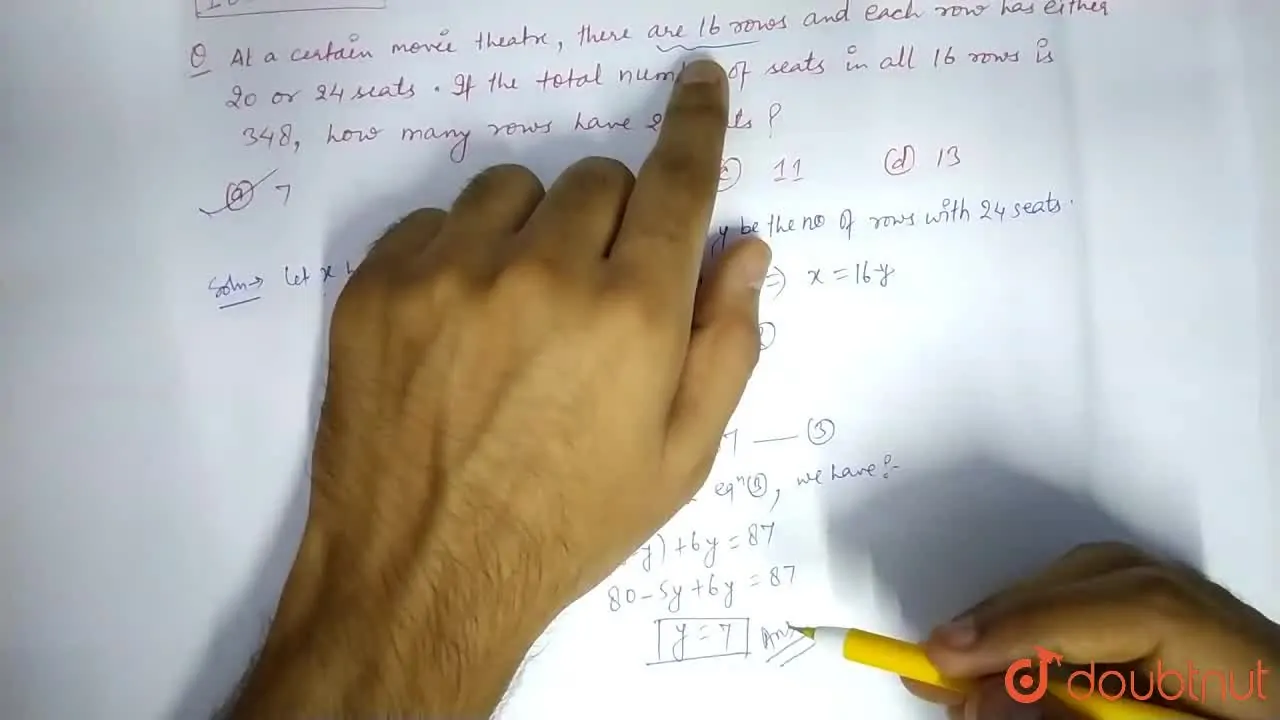 Q At a certain movie theatre, there are 16 rows and each row has either
20 or 24 seats. If the total number of seats in all 16 rows is
348, how many rows have
(a) 7 11 (d) 13
Soln→ Let x y be the no of rows with 24 seats.
=) x = 16-y
7 — (3)
eqn (3), we have:-
y) + 6y = 87
80 - 5y + 6y = 87
y = 7 Ans
doubtnut